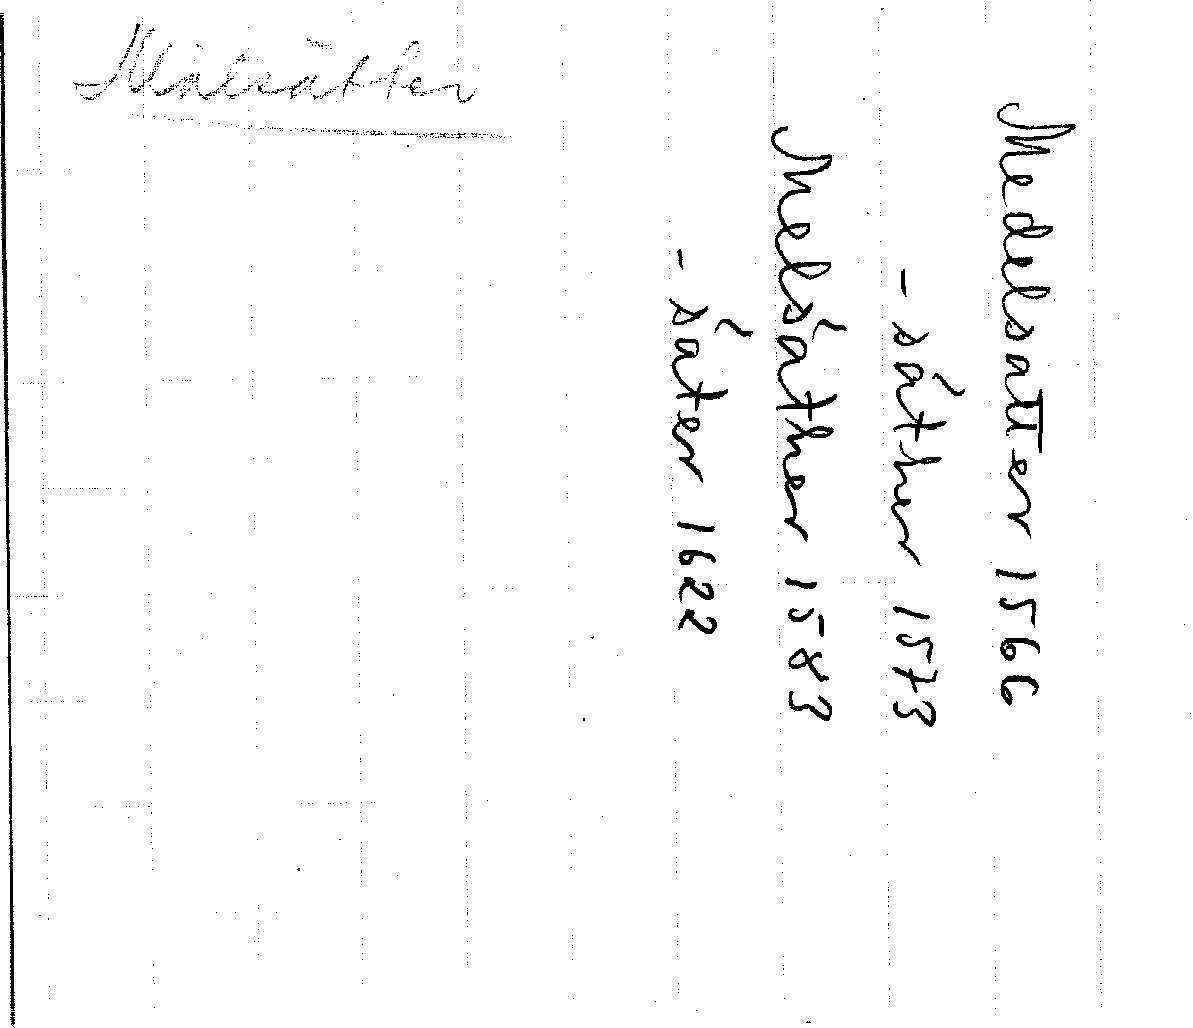 Målsätter
Medelsatter 1566
- säther 1573
Melsäther 1583
- säter 1622